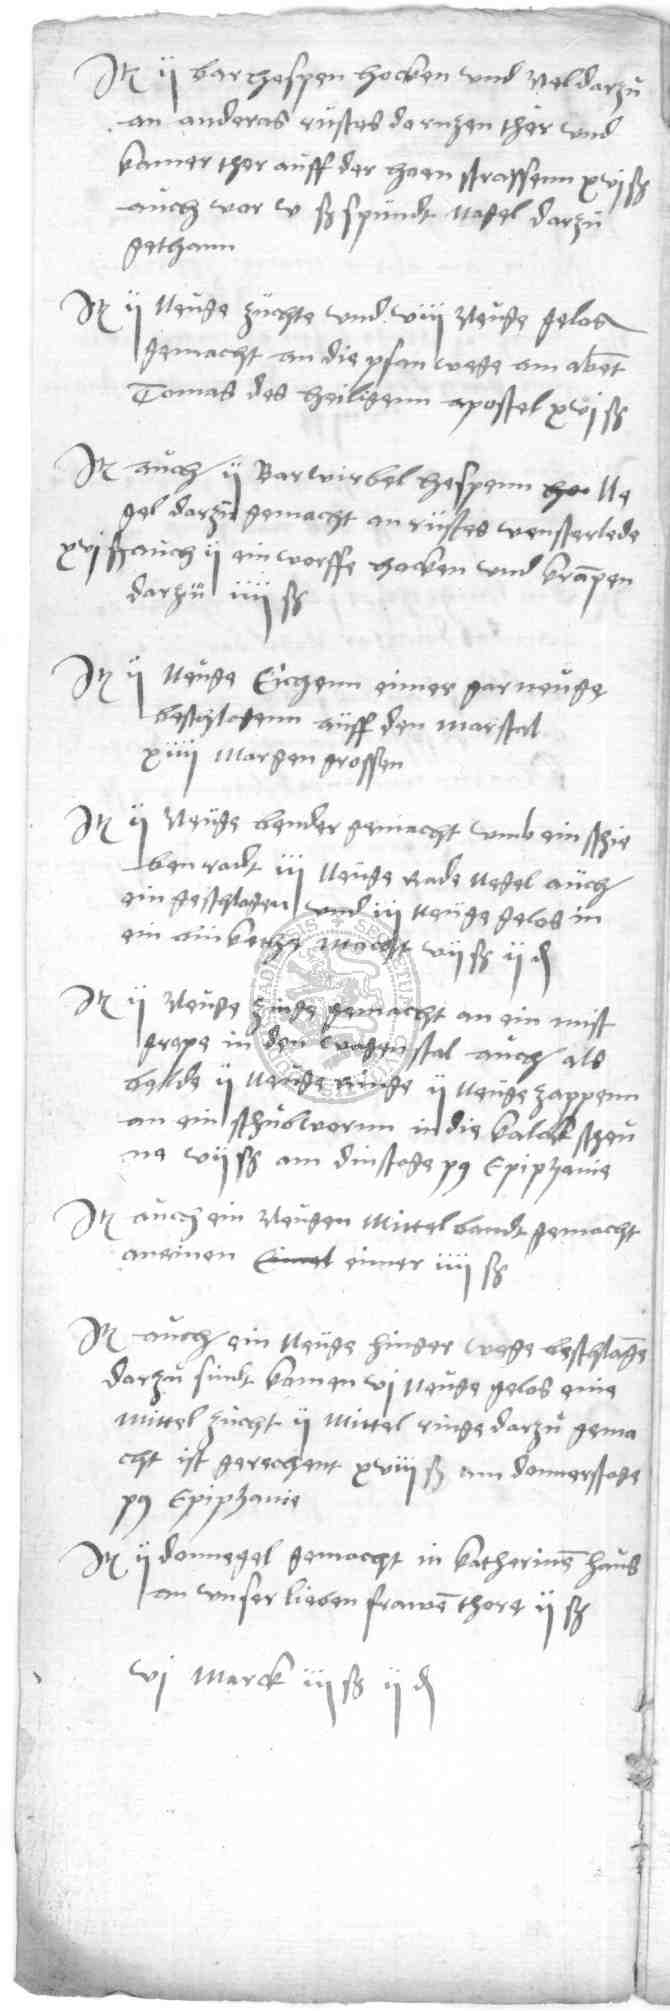 It ij bar hespen hocken vnd Nel darzu
an anderas rustes dornzen thor vnd
kamer ther auff der hoen strassenn xvj ß
auch vor v ß spundt Nagel darzu
gethann
It ij Neuge zuchte vnd viij Neuge gelos
gemacht an die pfan wege am abent
Tomas des heiligenn apostel xvj ß
It auch ij Bar wirbel hespenn ho Ne
gel darzu gemacht an rustes vensterlede
xvj ß auch ij ein worffe hocken vnd krapen
darzu iiij ß
It ij Neuge Eichenn eimer gar neuge
beschlagenn auff den marstal
xiiij Margengrossen
It ij Neuge bender gemacht vmb ein schie
ben radt iij Neuge Rade Negel auch
ein geschlagen vnd iij Neuge gelos in
ein macht vij ß ij d
It ij Neuge zinge gemacht an ein mist
grepe in den wagenstal auch als
balde ij Neuge ringe ij Neuge zappenn
an ein schubwornn in die kalck scheu
ne vij ß am dinstage p9 Epiphanie
It auch ein Neugen Mittel bandt gemacht
an einen Eimel eimer iiij ß
It auch ein Neuge hinger wege beschlage
darzu sindt kamen vj Neuge gelos eine
Mittel zucht ij Mittel ringe darzu gema
cht ist gerechent xviij ß am donnerstage
p9 Epiphanie
It ij donnegel gemacht in katherine haus
an vnser lieben frawe thore ij ß
vj Marck iij ß ij d